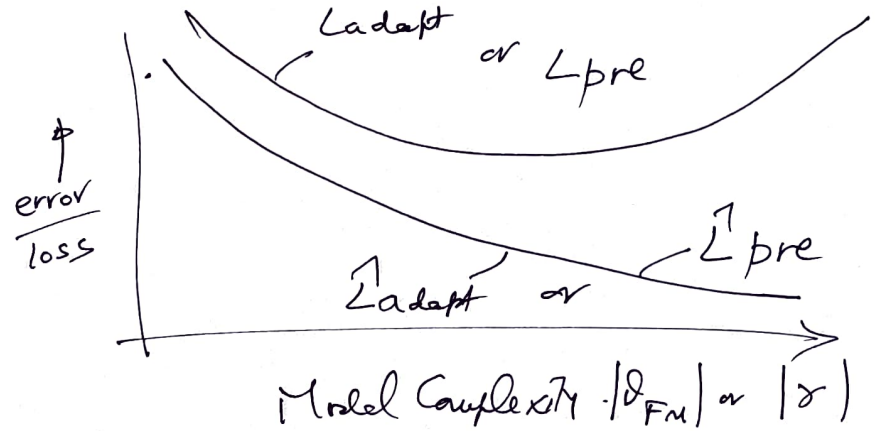 Ladapt or Lpre
error
loss
L̂adapt or L̂pre
Model Complexity |θFM| or |γ|